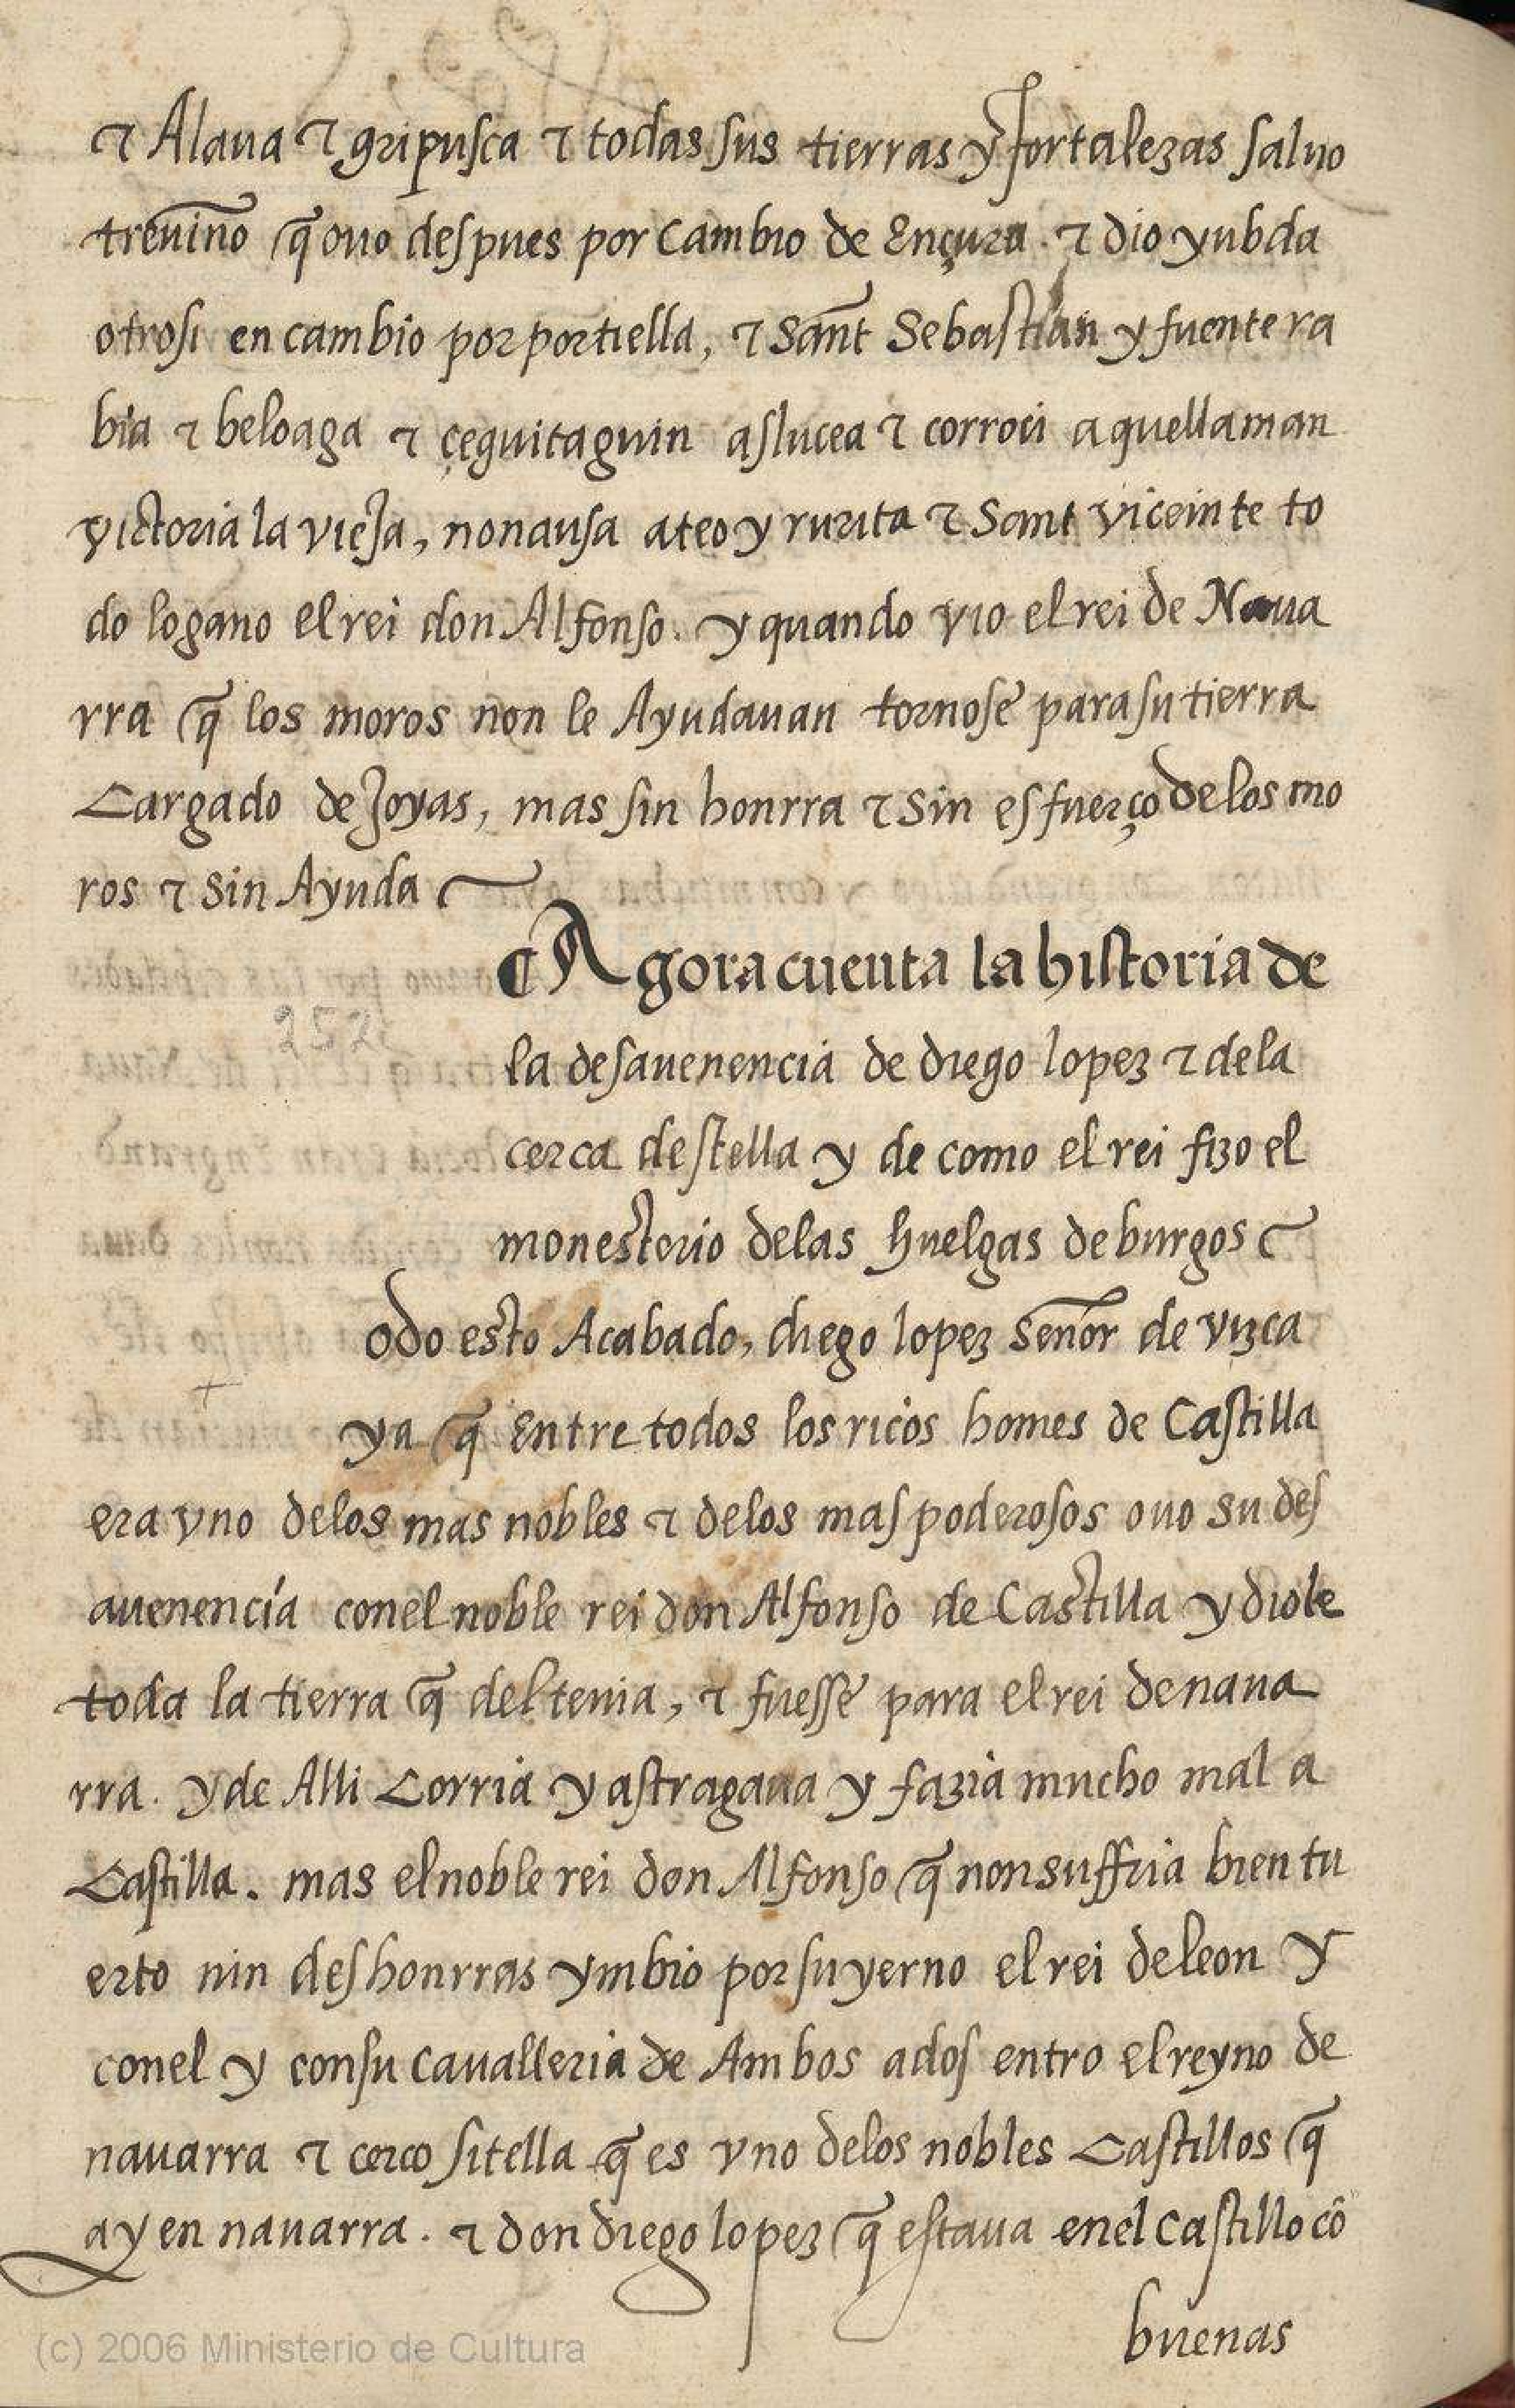 ⁊ Alaua ⁊ gripusca ⁊ todas sus tierras y fortalezas saluo
treuino q̃ ouo despues por cambio de Ençura. ⁊ dio yubda
otrosi en cambio por portiella, ⁊ Sant Sebastian y fuentera
bia ⁊ beloaga ⁊ çequitaguin aslucea ⁊ corroci aquellaman
victoria la vieja, nonausa ateo y rurita ⁊ Sant viceinte to
do logano el rei don Alfonso. y quando vio el rei de Naua
rra q̃ los moros non le Ayudauan tornose para su tierra
Cargado de Joyas, mas sin honrra ⁊ sin esfuerço de los mo
ros ⁊ sin Ayuda
252
¶ Agora cuenta la historia de
la desauenencia de diego lopez ⁊ dela
cerca destella y de como el rei fizo el
monesterio delas huelgas de burgos
odo esto Acabado, diego lopez señor de vizca
ya q̃ Entre todos los ricos homes de Castilla
era vno delos mas nobles ⁊ delos mas poderosos ouo su des
auenencía conel noble rei don Alfonso de Castilla y diole
toda la tierra q̃ del tenia, ⁊ fuesse para el rei de naua
rra. y de Alli Corria y astragaua y fazia mucho mal a
Castilla. mas el noble rei don Alfonso q̃ non suffria bien tu
erto nin deshonrras ymbio por su yerno el rei de leon y
conel y consu caualleria de Ambos ados entro el reyno de
nauarra ⁊ cerco sitella q̃ es vno delos nobles Castillos q̃
ay en nauarra. ⁊ don diego lopez q̃ estaua enel castillo cõ
buenas
(c) 2006 Ministerio de Cultura